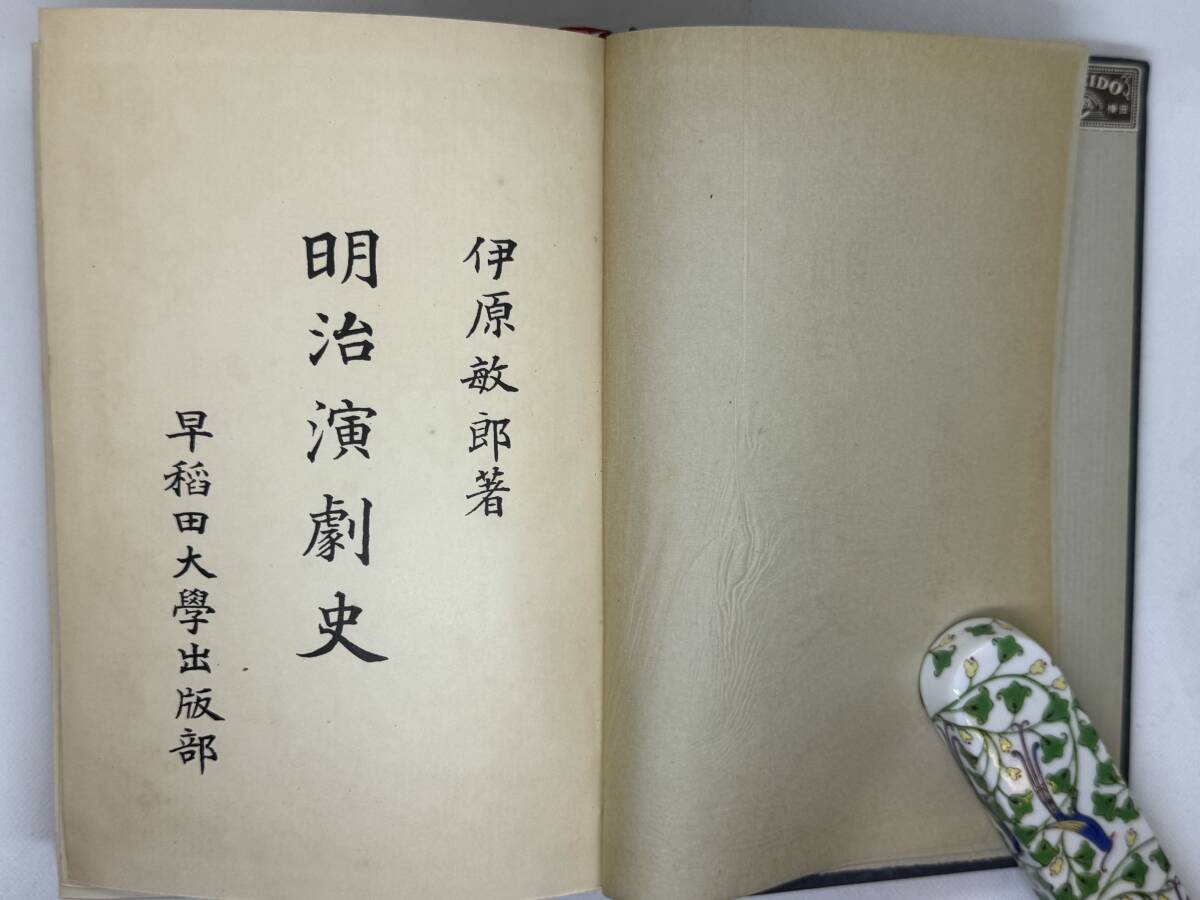 伊原敏郎著
明治演劇史
早稲田大學出版部
IDO